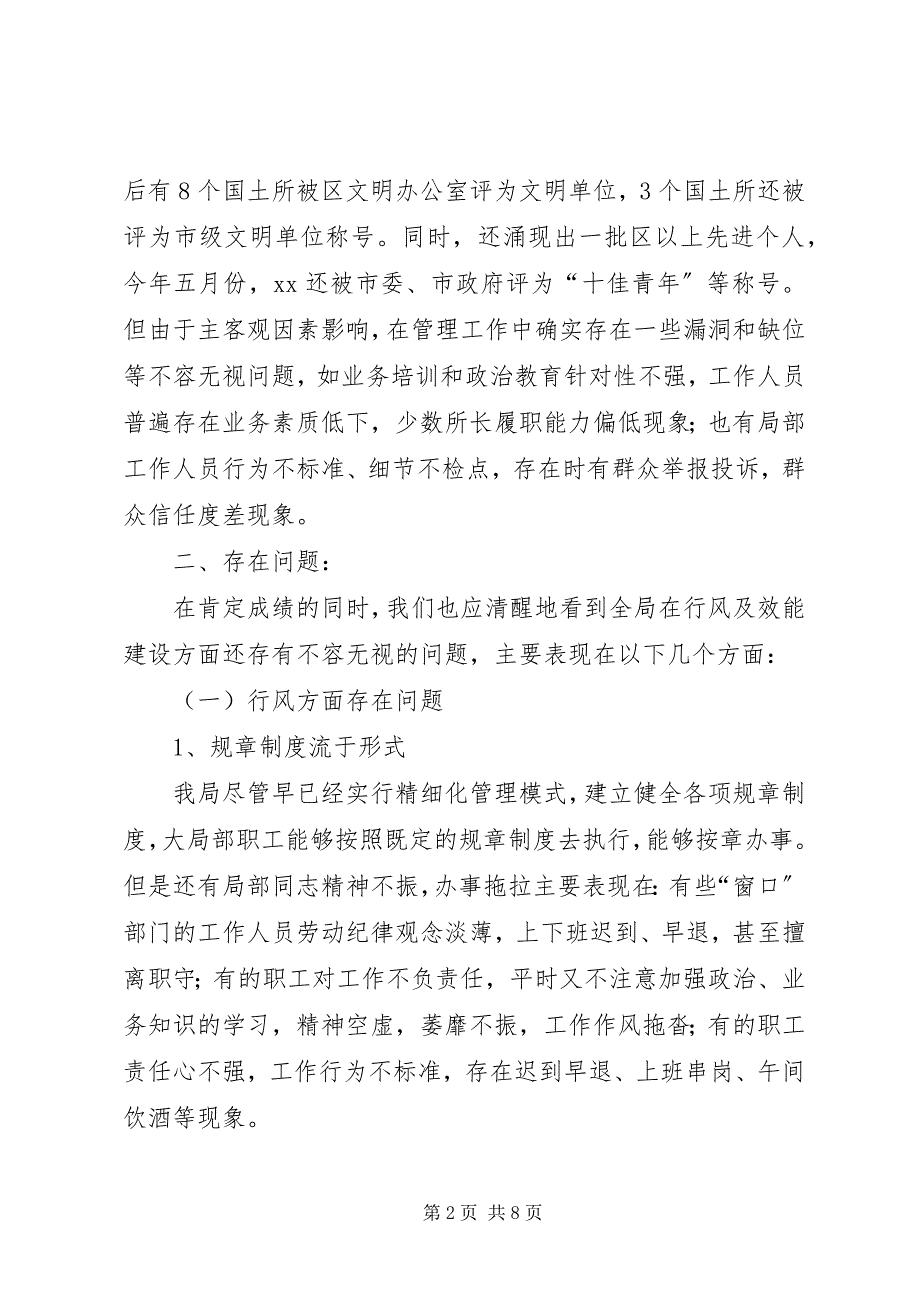 后有 8 个国土所被区文明办公室评为文明单位，3 个国土所还被
评为市级文明单位称号。同时，还涌现出一批区以上先进个人，
今年五月份，xx 还被市委、市政府评为“十佳青年〞等称号。
但由于主客观因素影响，在管理工作中确实存在一些漏洞和缺位
等不容无视问题，如业务培训和政治教育针对性不强，工作人员
普遍存在业务素质低下，少数所长履职能力偏低现象；也有局部
工作人员行为不标准、细节不检点，存在时有群众举报投诉，群
众信任度差现象。
二、存在问题：
在肯定成绩的同时，我们也应清醒地看到全局在行风及效能
建设方面还存有不容无视的问题，主要表现在以下几个方面：
（一）行风方面存在问题
1、规章制度流于形式
我局尽管早已经实行精细化管理模式，建立健全各项规章制
度，大局部职工能够按照既定的规章制度去执行，能够按章办事。
但是还有局部同志精神不振，办事拖拉主要表现在：有些“窗口〞
部门的工作人员劳动纪律观念淡薄，上下班迟到、早退，甚至擅
离职守；有的职工对工作不负责任，平时又不注意加强政治、业
务知识的学习，精神空虚，萎靡不振，工作作风拖沓；有的职工
责任心不强，工作行为不标准，存在迟到早退、上班串岗、午间
饮酒等现象。
第 2 页 共 8 页